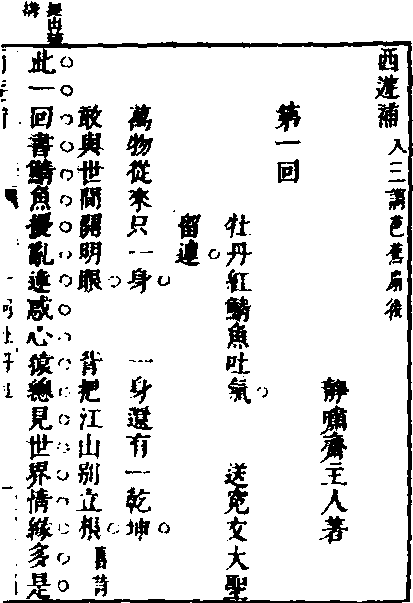 西遊補 入三調芭蕉扇後
靜嘯齋主人著
第一回
牡丹紅鯖魚吐氣 送冤文大聖
留連
萬物從來只一身 一身還有一乾坤
敢與世間開明眼 肯把江山別立根
此一回書鯖魚擾亂迷惑心猿總見世界情緣多是